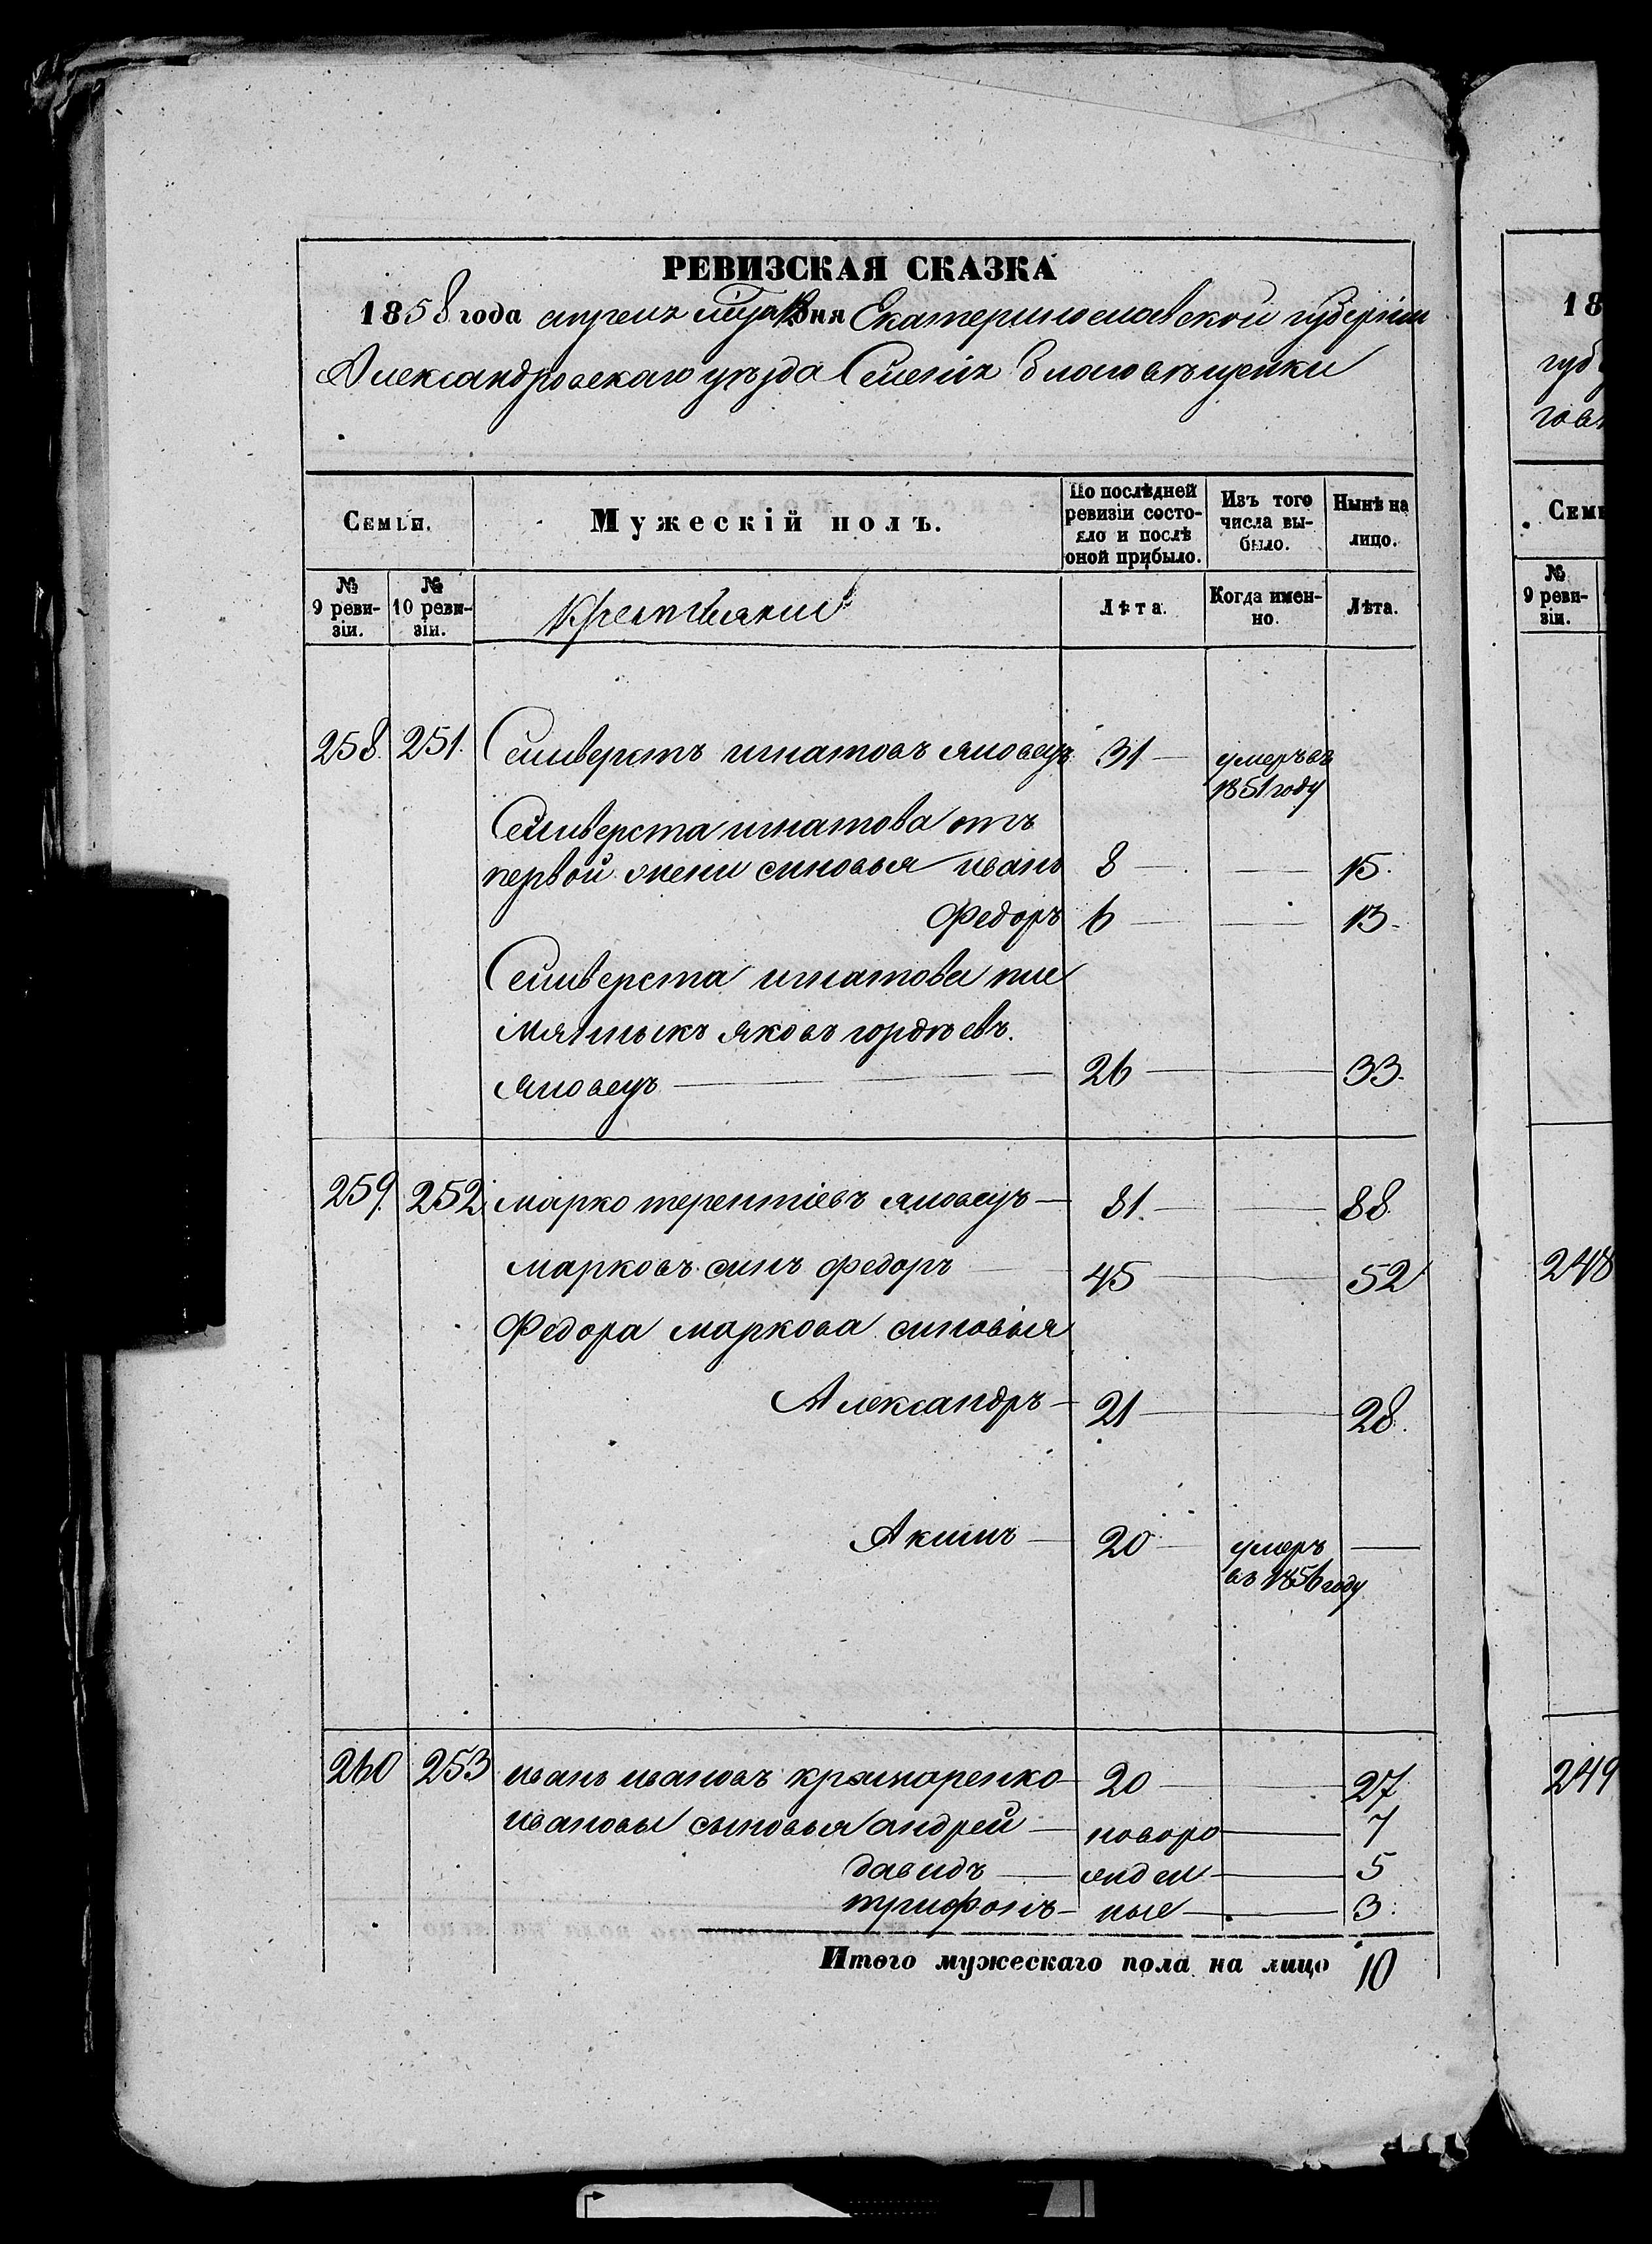 РЕВИЗСКАЯ СКАЗКА
1858 года апреля дня Екатеринославской губерніи
Александровскаго уѣзда Селенія Благовѣщенки
Семьи.
Мужескій полъ.
По послѣдней ревизіи состояло и послѣ оной прибыло.
Изъ того числа выбыло.
Нынѣ на лицо.
№ 9 ревизіи.
№ 10 ревизіи.
Крестьянинъ
Лѣта.
Когда именно.
Лѣта.
258. 251. Селиверстъ игнатовъ яловецъ 31 умеръ въ
1851 году
Селиверста игнатова отъ
первой жени синовья иванъ 8 15.
Федоръ 6 13.
Селиверста игнатова пле
мянныкъ яковъ гордѣевъ.
яловецъ 26 33.
259. 252. марко терентіевъ яловецъ 81. 88.
марковъ синъ федоръ 45 52
Федора маркова синовья
Александръ 21 28.
Акимъ 20 умеръ
въ 1856 году
260 253 иванъ ивановъ крамаренко 20 27
ивановы сыновья андрей новоро 7
давидъ жден 5
трифонъ ные 3.
Итого мужескаго пола на лицо 10
18
губ
гов
Семь
№ 9 ревизіи.
248
249